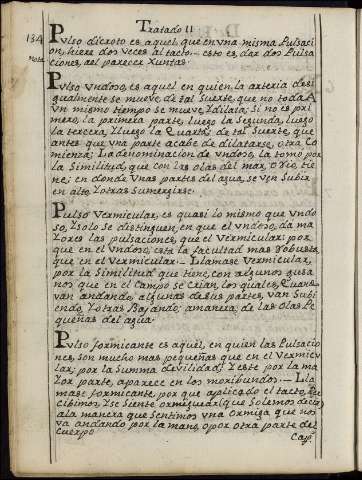 Tratado II
134
Pulso dicroto es aquel, que en una misma Pulsaci
on, hiere dos veces al tacto.- esto es, dar dos Pulsa
ciones, ael parecer Xuntas.
Nota
Pulso Vndoso, es aquel en quien la arteria desi
gualmente se mueve, de tal suerte, que no toda A
Vn mismo tiempo se mueve, Y dilata; Si no es pri
mero, la primera parte, luego la Segunda, luego
la tercera, Y luego la Quarta; de tal Suerte, que
antes que una parte acabe de dilatarse, otra Co
mienza; La denominacion de Vndoso, la tomò por
la Similitud, que con las Olas del mar, o Rio, tie
ne; en donde Vnas partes del agua, se ven Subir
en alto, Y otras Sumergirse.
Pulso Vermicular, es quasi lo mismo que Vndo
so, Y Solo se distinguen, en que el Vndoso, dà ma
Yores las pulsaciones, que el Vermicular; por
que en el Vndoso, està la facultad mas Robusta,
que en el Vermicular.- Llamase Vermicular,
por la Similitud que tiene, con algunos gusa
nos que en el Campo se Crian, los quales, Quando
van andando, algunas desus partes, van Subi
endo, Y otras Bajando; amanera, de las Olas Pe
queñas del agua.
Pulso formicante es aquel, en quien las Pulsacio
nes, son mucho mas pequeñas que en el Vermicu
lar; por la Summa devilidad; Y este por la ma
Yor parte, aparece en los moribundos.- Lla
mase formicante, por que aplicado el tacto, Per
cibimos, Y Se Siente ormiguear (que Solemos decir)
ala manera que Sentimos una Ormiga que nos
va andando por la mano, o por otra parte del
Cuerpo
Cap.